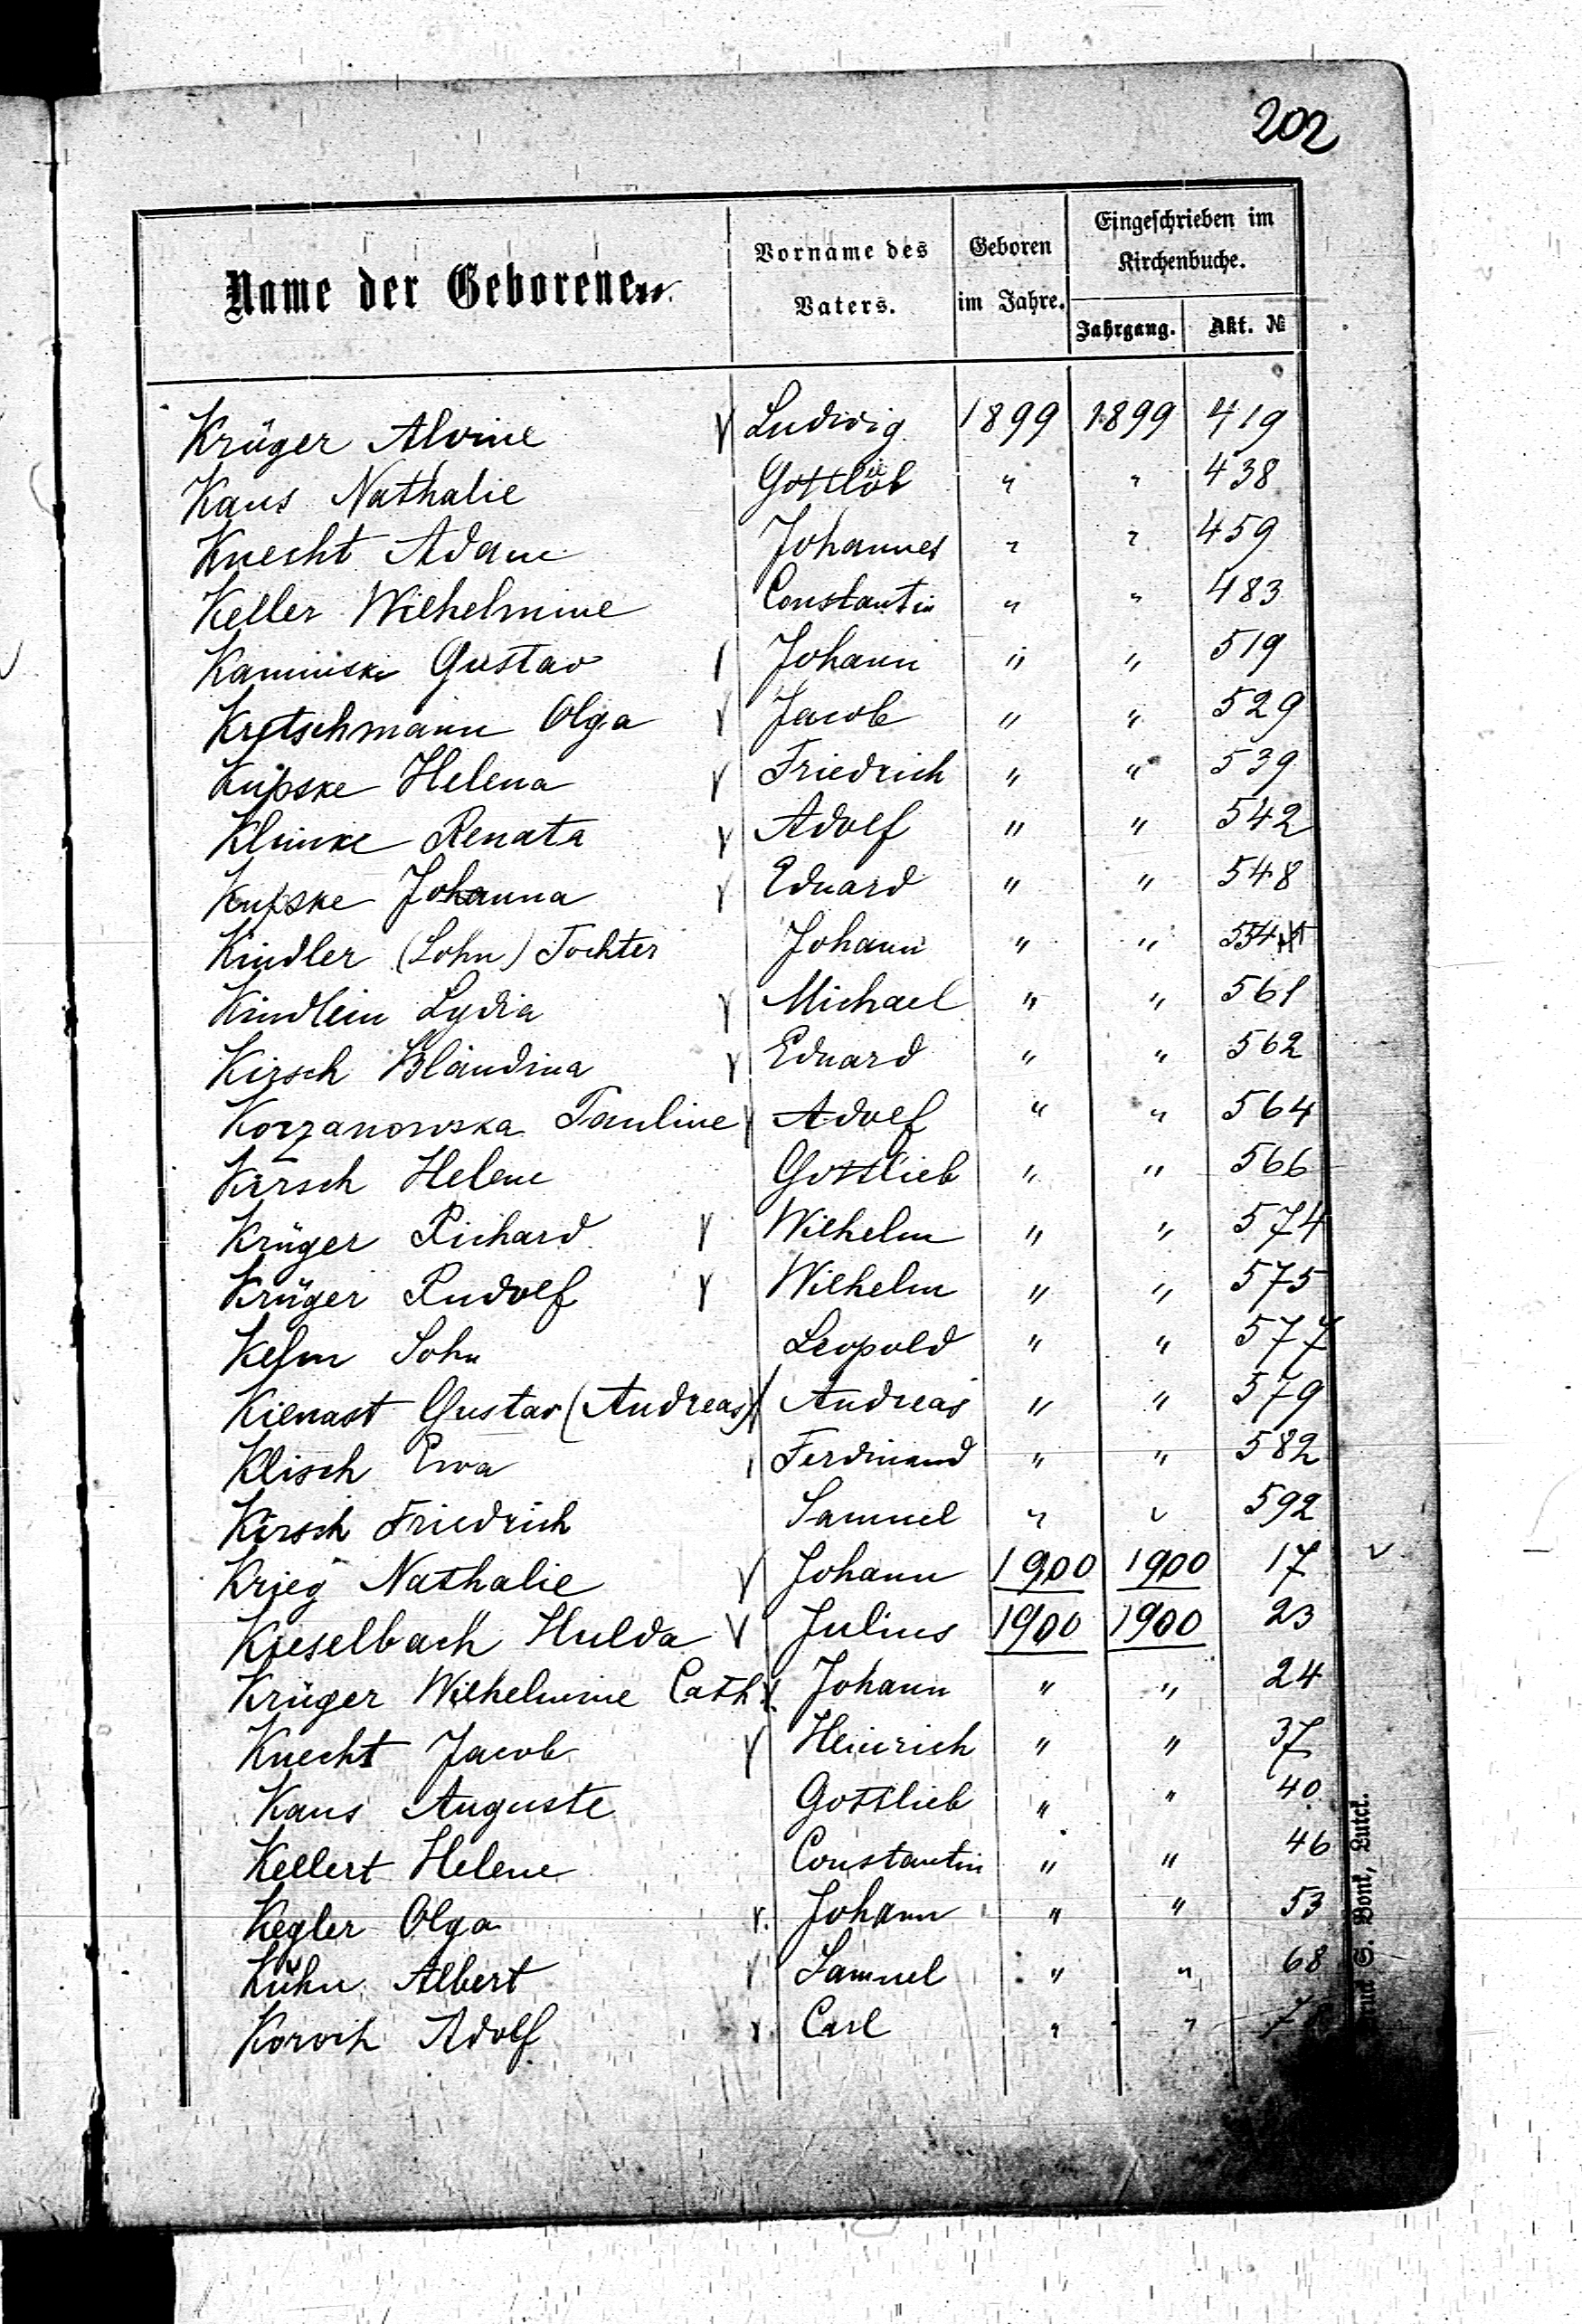 202
Name der Geborenen.
Vorname des Vaters.
Geboren im Jahre.
Eingeschrieben im Kirchenbuche.
Jahrgang. Akt. №
Krüger Alvine Ludwig 1899 1899 419
Kaus Nathalie Gottlieb " " 438
Knecht Adam Johannes " " 459
Keller Wilhelmine Constantin " " 483
Kaminski Gustav Johann " " 519
Kretschmann Olga Jacob " " 529
Kupske Helena Friedrich " " 539
Klinke Renata Adolf " " 542
Kupske Johanna Eduard " " 548
Kindler (Sohn) Tochter Johann " " 554
Kindlein Lydia Michael " " 561
Kirsch Blandina Eduard " " 562
Korzanowska Pauline Adolf " " 564
Kirsch Helene Gottlieb " " 566
Krüger Richard Wilhelm " " 574
Krüger Rudolf Wilhelm " " 575
Kelm Sohn Leopold " " 577
Kienast Gustav (Andreas) Andreas " " 579
Klisch Ewa Ferdinand " " 582
Kirsch Friedrich Samuel " " 592
Krieg Nathalie Johann 1900 1900 17
Kieselbach Hulda Julius 1900 1900 23
Krüger Wilhelmine Cath. Johann " " 24
Knecht Jacob Heinrich " " 37
Kaus Auguste Gottlieb " " 40
Kellert Helene Constantin " " 46
Kegler Olga Johann " " 53
Kühn Albert Samuel " " 68
Koroch Adolf Carl " "
S. Bonk, Lutck.